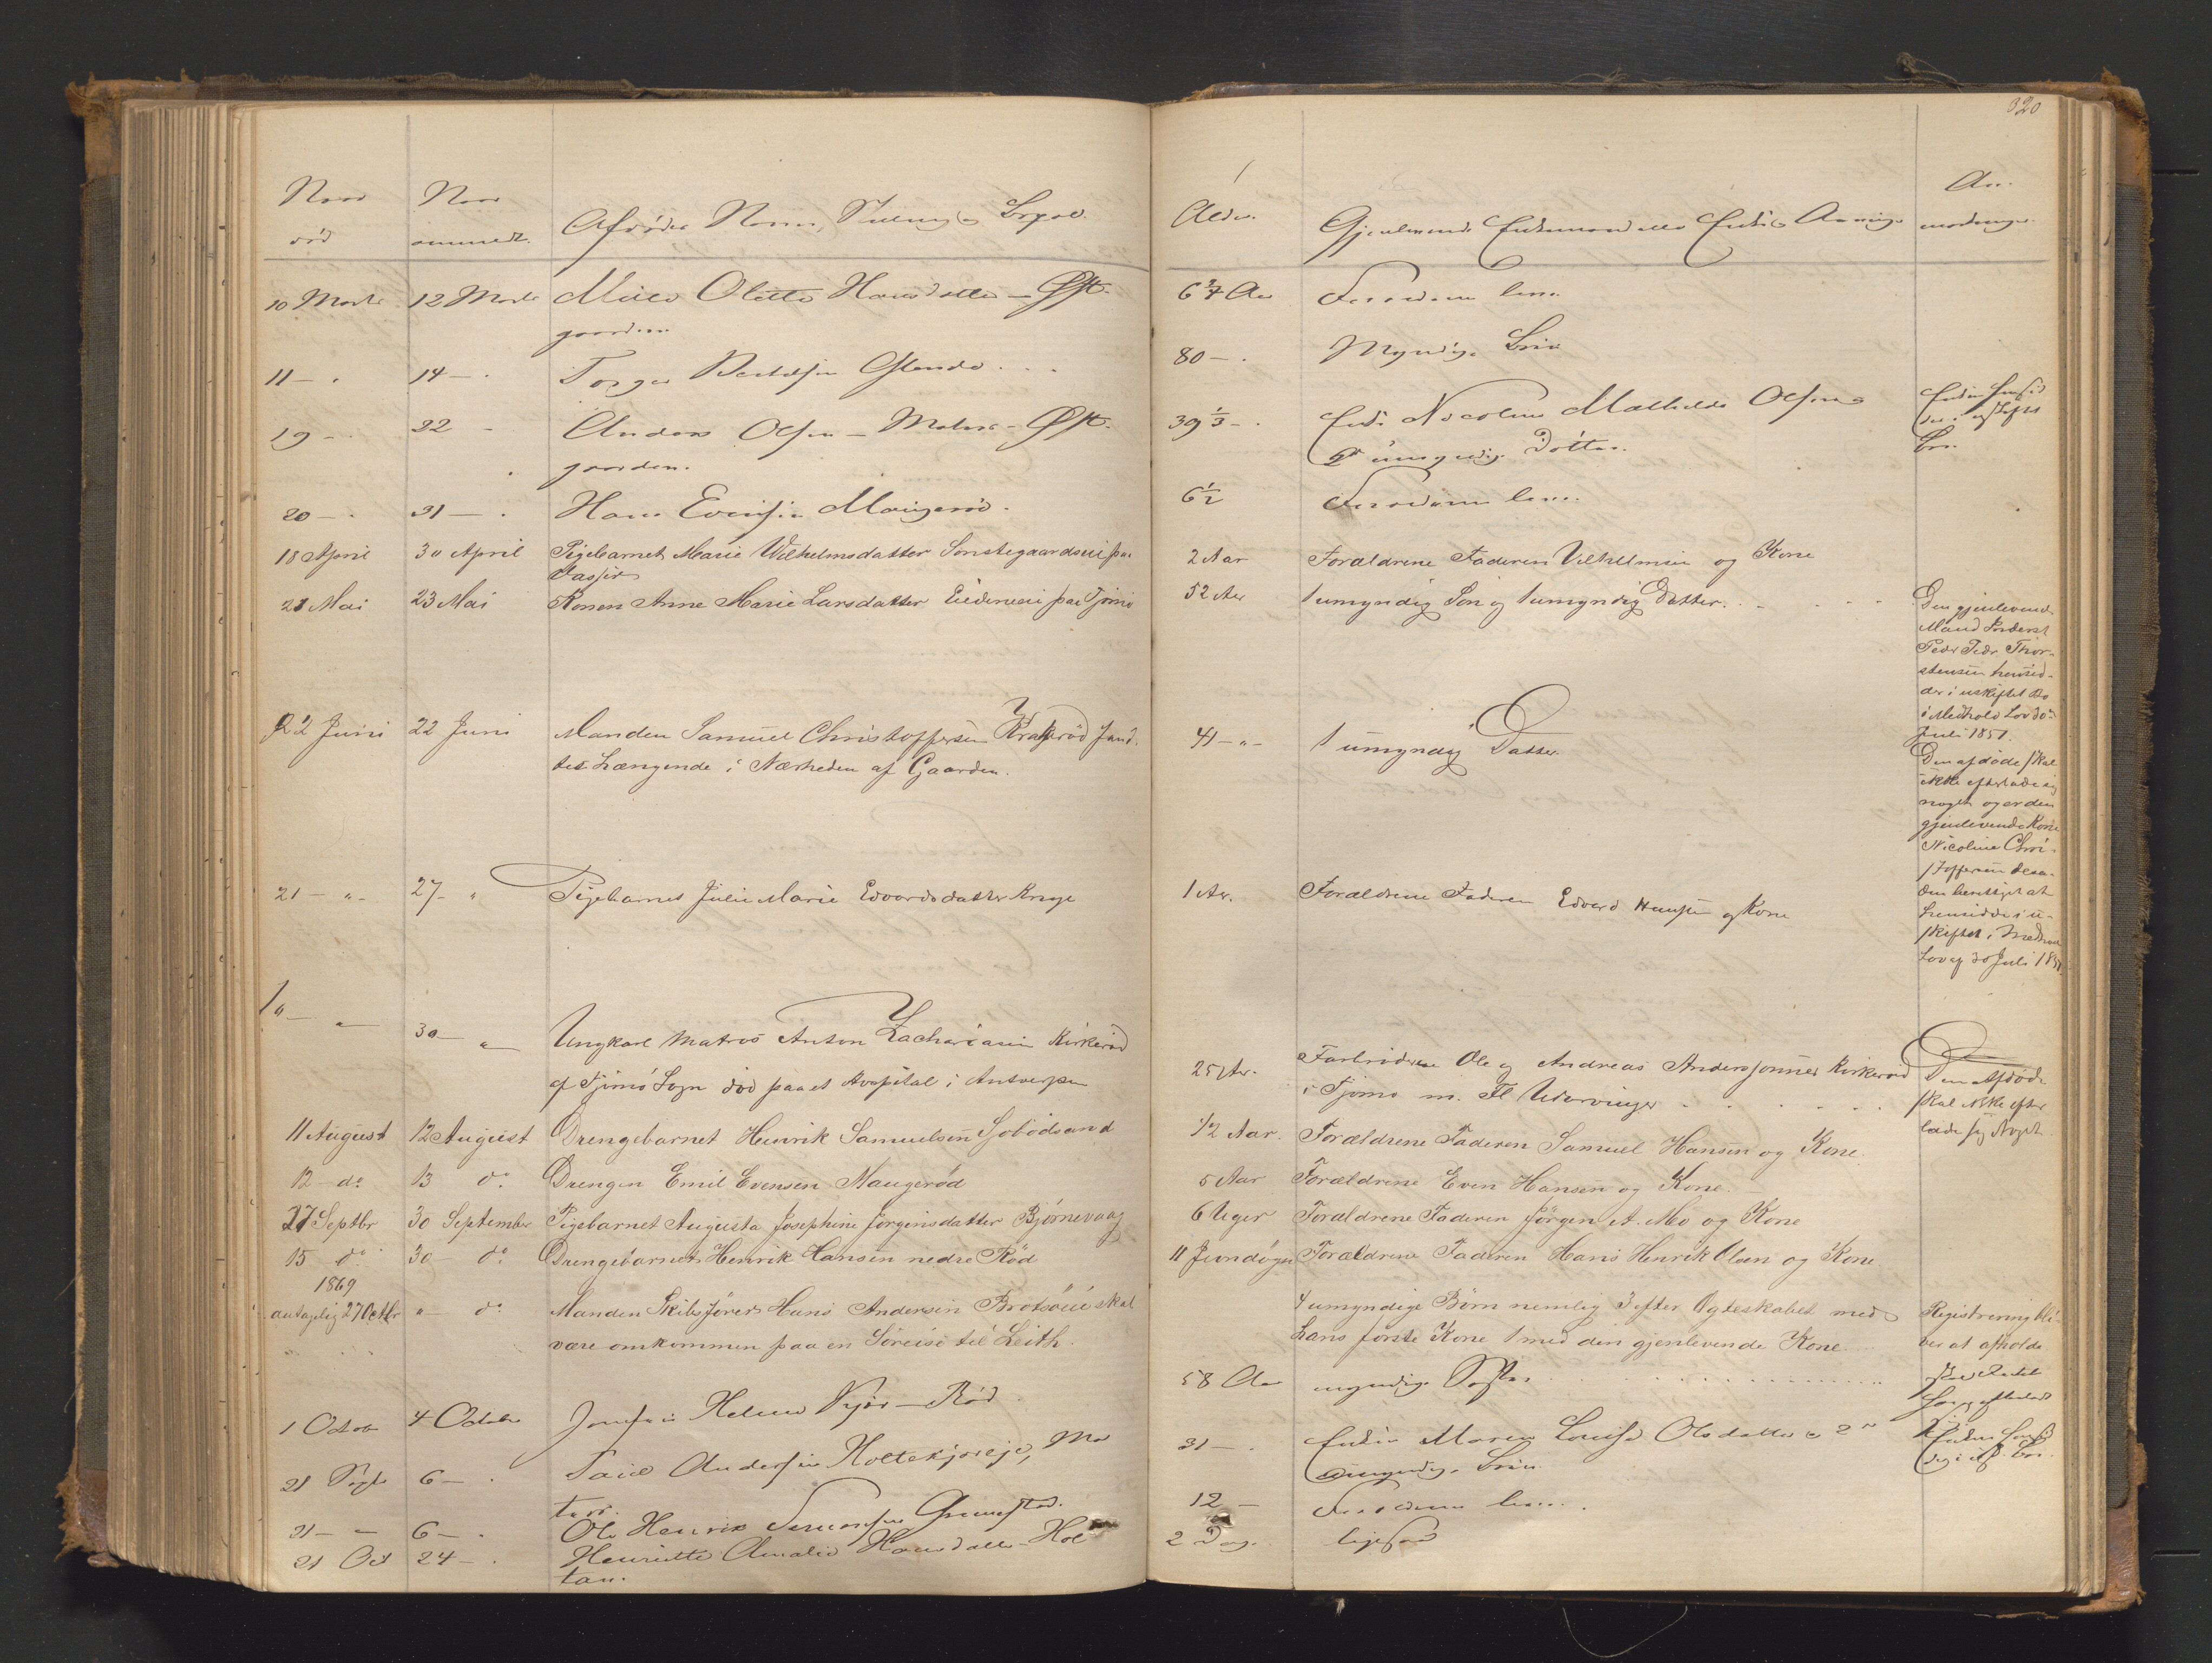 320
Naar Naar
død anmeldt. Afdødes Navn, Stilling og Bopæl.
Alder. Gjenlevende Enkemand eller Enke & Arvinge
An-
mærkninger
10 Marts 12 Marts Olette Hansdatter - Øst-
gaarden
6 3/4 Aar Forældrene leve.
11 - . 14 - . Torger Bertelsen Glende . . .
80 - . Myndige Børn
19 - . 22 - Anders Olsen - Matros - Øst-
gaarden.
39 1/3 - . Enke Nicoline Mathilde Olsen &
2 umyndige Døttre.
Enken hensid
der i uskiftet
Bo.
20 - . 31 - . Hans Evensen Maugerød.
6 1/2 Forældrene leve.
18 April 30 April Pigebarnet Marie Wilhelmsdatter Sønstegaardseie paa
2 Aar Forældrene Faderen Vilhelmsen og Kone
21 Mai 23 Mai Konen Anne Marie Larsdatter Eidemeie paa Tjømø
52 Aar 1 umyndig Søn og 1 umyndig Datter. . - - - -
Den gjenlevende
Mand
Peder Thor-
stensen hensid-
der i uskiftet Bo
i Medhold Lov 30
Juli 1851.
22 Juni 22 Juni Manden Samuel Christoffersen Krakerød fand-
tes hængende i Nærheden af Gaarden.
41 - " - 1 umyndig Datter.
Den afdøde skal
ikke efterlade sig
noget og er den
gjenlevende Kone
Nicoline Chri-
stoffersen desu-
den berettiget at
hensidde i u-
skiftet i Medhold
Lov af 30 Juli 1851.
21 - " - 27 - " Pigebarnet Julie Marie Edvardsdatter Kruge
1 Ar. Forældrene Faderen Edvard Hansen og Kone
30 - " Ungkarl Matros Anton Zachariasen Kirkerød
af Tjømø Sogn død paa et Hospital i Antverpen
25 Ar. Farbrødrene Ole og Andreas Anderssønner Kirkerød
i Tjømø m. Fl. Udarvinger - . . . . . .
Den Afdøde
skal ikke efter
lade sig Noget
11 August 12 August Drengebarnet Henrik Samuelsen Sjobodsand
1/2 Aar. Forældrene Faderen Samuel Hansen og Kone.
12 do 13 do Drengen Emil Evensen Maugerød
5 Aar Forældrene Even Hansen og Kone. -
27 Septbr 30 September Pigebarnet Augusta Josephine Jørgensdatter Bjørnevaag
6 Uger Forældrene Faderen Jørgen A. Mo og Kone
15 do 30 - do Drengebarnet Henrik Hansen nedre Rød
11 Forældrene Faderen Hans Henrik Olsen og Kone
1869
antagelig 27 Octbr " - do Manden Skibsfører Hans Andersen Brøtsøeie skal
være omkommen paa en Søreise til Leith.
4 umyndige Børn nemlig 3 efter Ægteskabet med
hans første Kone 1 med den gjenlevende Kone
Registrering bli-
ver at afholde
1 Octob 4 Octobr Helene Rød
58 Aar myndige . . . . . .
21 Septb 6 - . Paul Andersen Holtekjæreje, Ma
tros.
31 - . Enken Maren Louise Olsdatter & 2
umyndige Børn
21 - - 6 - . Ole Henrik Grimestad.
12 - Forældrene leve. .
21 Oct 24 - . Henriette Amalie Hansdatter - Hol
tan.
2 Dag. ligesaa